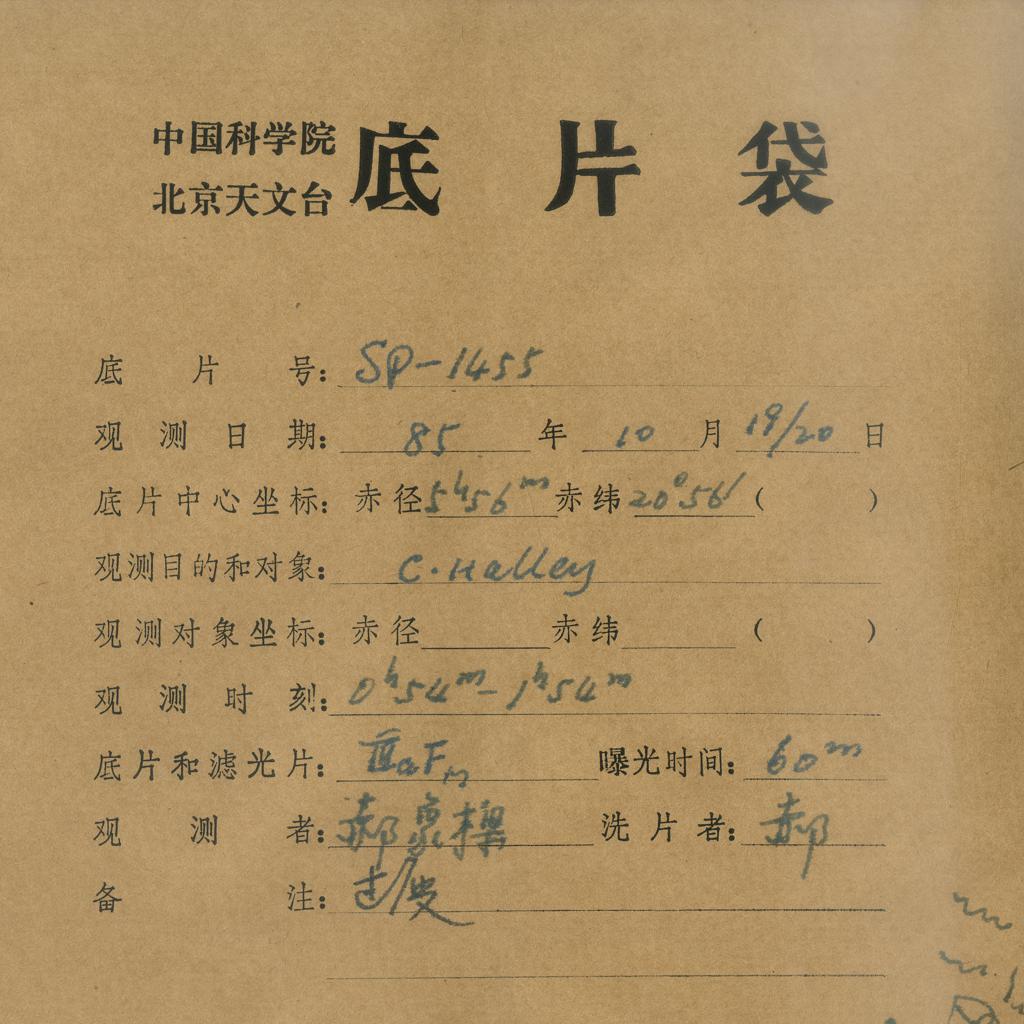 中国科学院
北京天文台
底片袋
底片号：SP-1455
观测日期：85年10月19/20日
底片中心坐标：赤径5ʰ56ᵐ赤纬20°56′（ ）
观测目的和对象：C.Halley
观测对象坐标：赤径 赤纬 （ ）
观测时刻：0ʰ54ᵐ-1ʰ54ᵐ
底片和滤光片：ⅢaF 曝光时间：60ᵐ
观测者：郝象樑 洗片者：郝
备注：